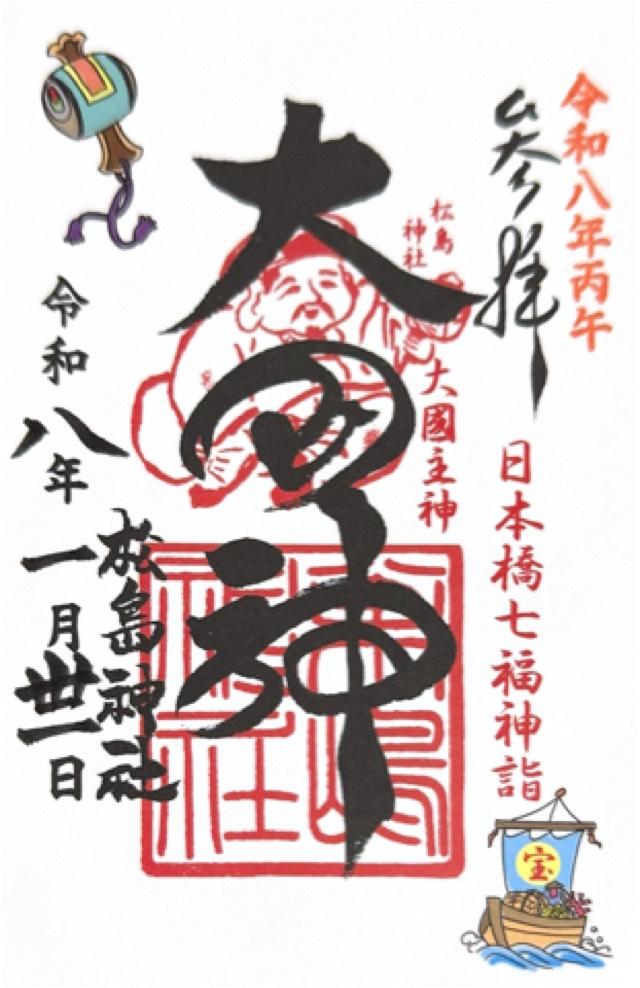 令和八年丙午
参拝
日本橋七福神詣
松島
神社
大國主神
大国神
松島
神社
松島神社
令和八年一月卅一日
宝